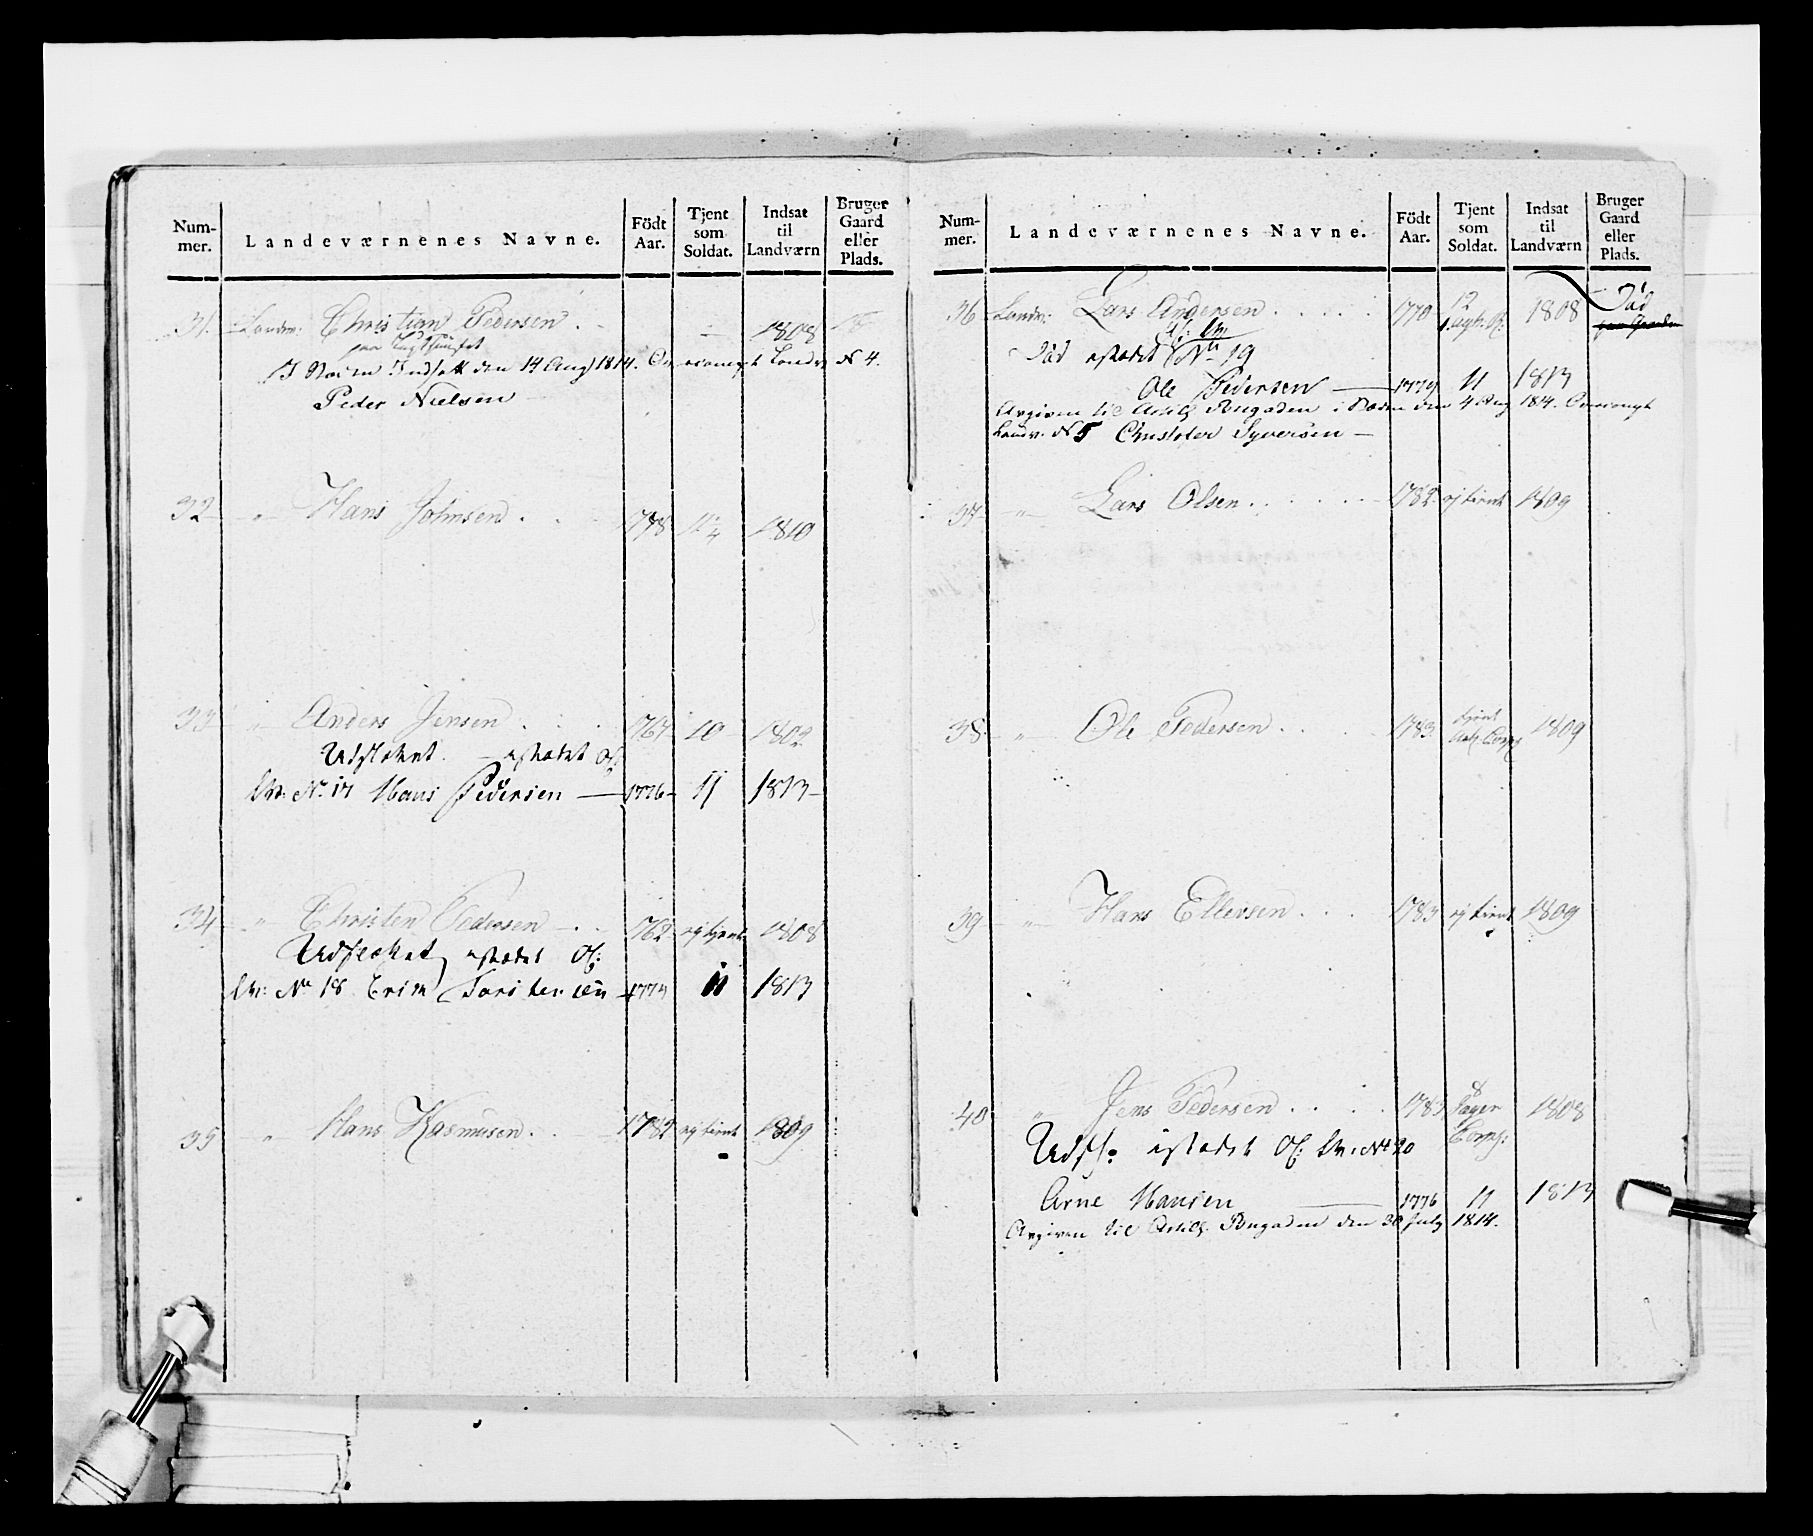 Num-
mer.
Landeværnenes Navne.
Födt
Aar.
Tjent
som
Soldat.
Indsat
til
Landværn
Bruger
Gaard
eller
Plads.
31. Landv: Christian Pedersen . - 1808
den 14 Aug 1814. Landv. N 4.
Peder Nielsen
32 " Hans Johnsen . . 1778 11 1/4 1810
33 " Anders Jensen . . . 1767 10 1802
Udslettet. istædet Of:
Lv: No. 17 Hans Pedersen — 1776 11 1813
34 " Christen Pedersen . . 1762 ej tjent 1808
Udslettet istædet Of:
Lv: No 18 Erik Torstensen 1774 11 1813
35 " Hans Rasmusen . . 1782 ej tient 1809
Num-
mer.
Landeværnenes Navne.
Födt
Aar.
Tjent
som
Soldat.
Indsat
til
Landværn
Bruger
Gaard
eller
Plads.
36 Landv: Lars Andersen . . . . . 1770 12 1808 Död
Död istædet Of: Lv: No 19
Ole Pedersen — 1779 11 1813
Avgiven til Artillr. Brigaden i den 4 Aug 1814.
Landv. N 5 Christofer Syversen —
37 " Lars Olsen . . . . 1782 ej tient 1809
38 " Ole Pedersen . . . . 1783 tjent Corps 1809
39 " Hans Ellevsen . . . 1783 ej tient 1809
40 " Jens Pedersen . . . . 1783 Jæger 1808
Corps:
Udsl. istædet Of: Lv: No 20
Arne Hansen — 1776 11 1813
Avgiven til Artillr. Brigaden den 30 July 1814.